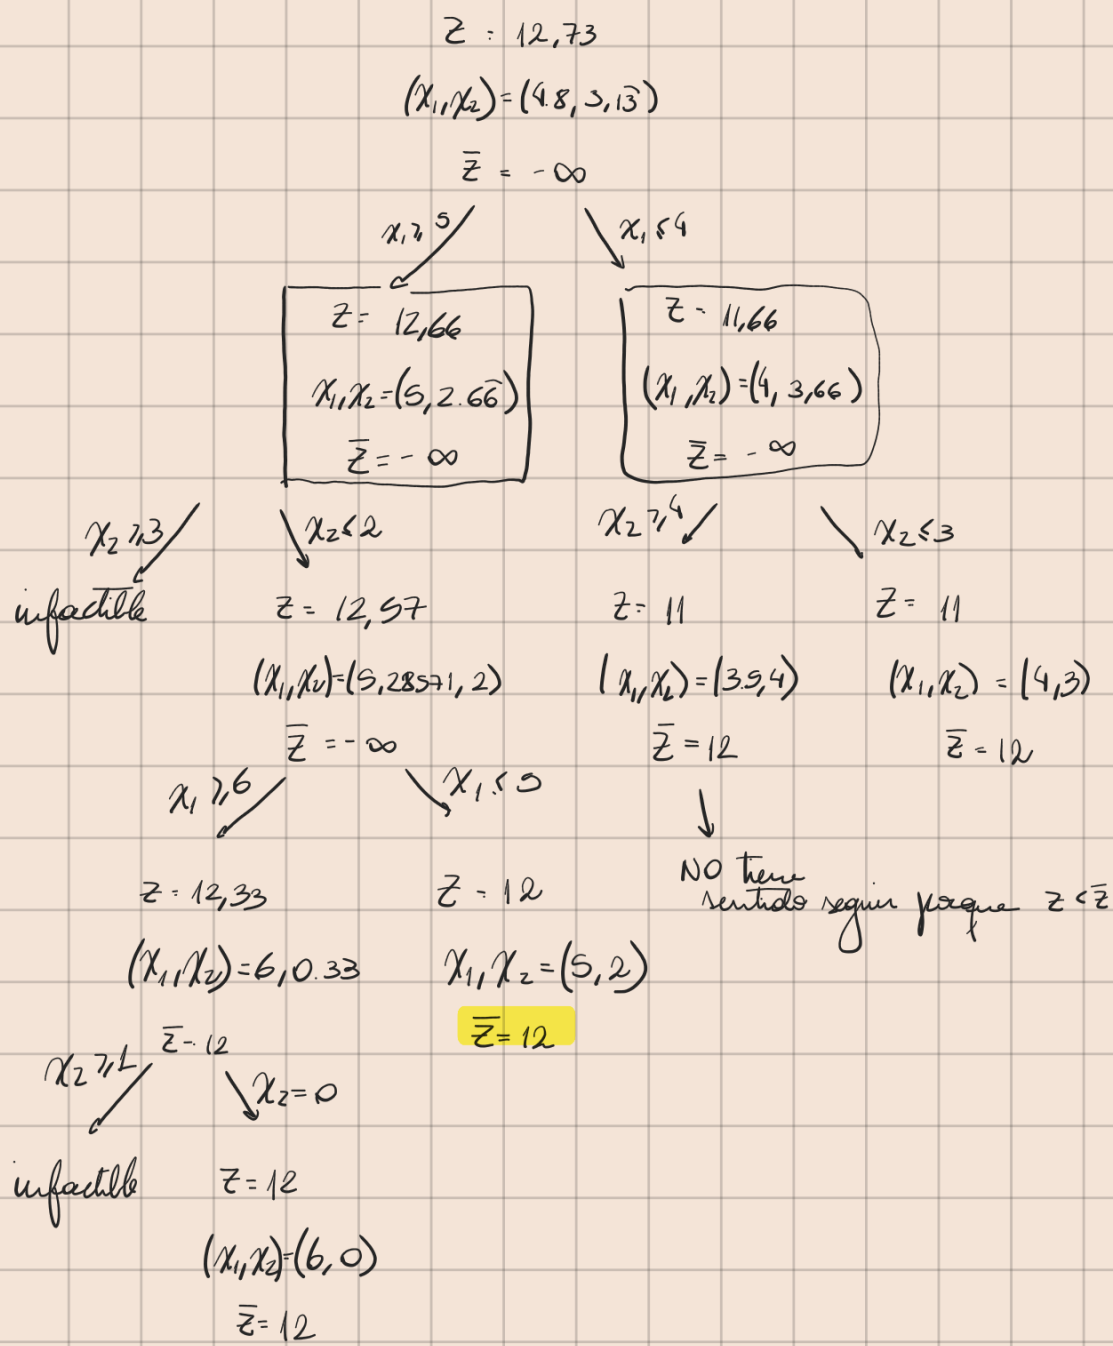 Z = 12,73
(x₁,x₂)=(4.8, 3,13̄)
z̄ = -∞
x₁ ≥ 5
x₁ ≤ 4
Z = 12,66
x₁,x₂=(5, 2.66̄)
z̄ = -∞
Z = 11,66
(x₁,x₂)=(4, 3,66)
z̄ = -∞
x₂ ≥ 3
x₂ ≤ 2
x₂ ≥ 4
x₂ ≤ 3
infactible
Z = 12,57
(x₁,x₂)=(5,28571, 2)
z̄ = -∞
Z = 11
(x₁,x₂)=(3.5,4)
z̄ = 12
Z = 11
(x₁,x₂) = (4,3)
z̄ = 12
x₁ ≥ 6
x₁ ≤ 5
NO tiene
sentido seguir porque z < z̄
Z = 12,33
(x₁,x₂)=6,0.33
z̄ = 12
Z = 12
x₁,x₂=(5,2)
z̄ = 12
x₂ ≥ 1
x₂ = 0
infactible
Z = 12
(x₁,x₂)=(6,0)
z̄ = 12